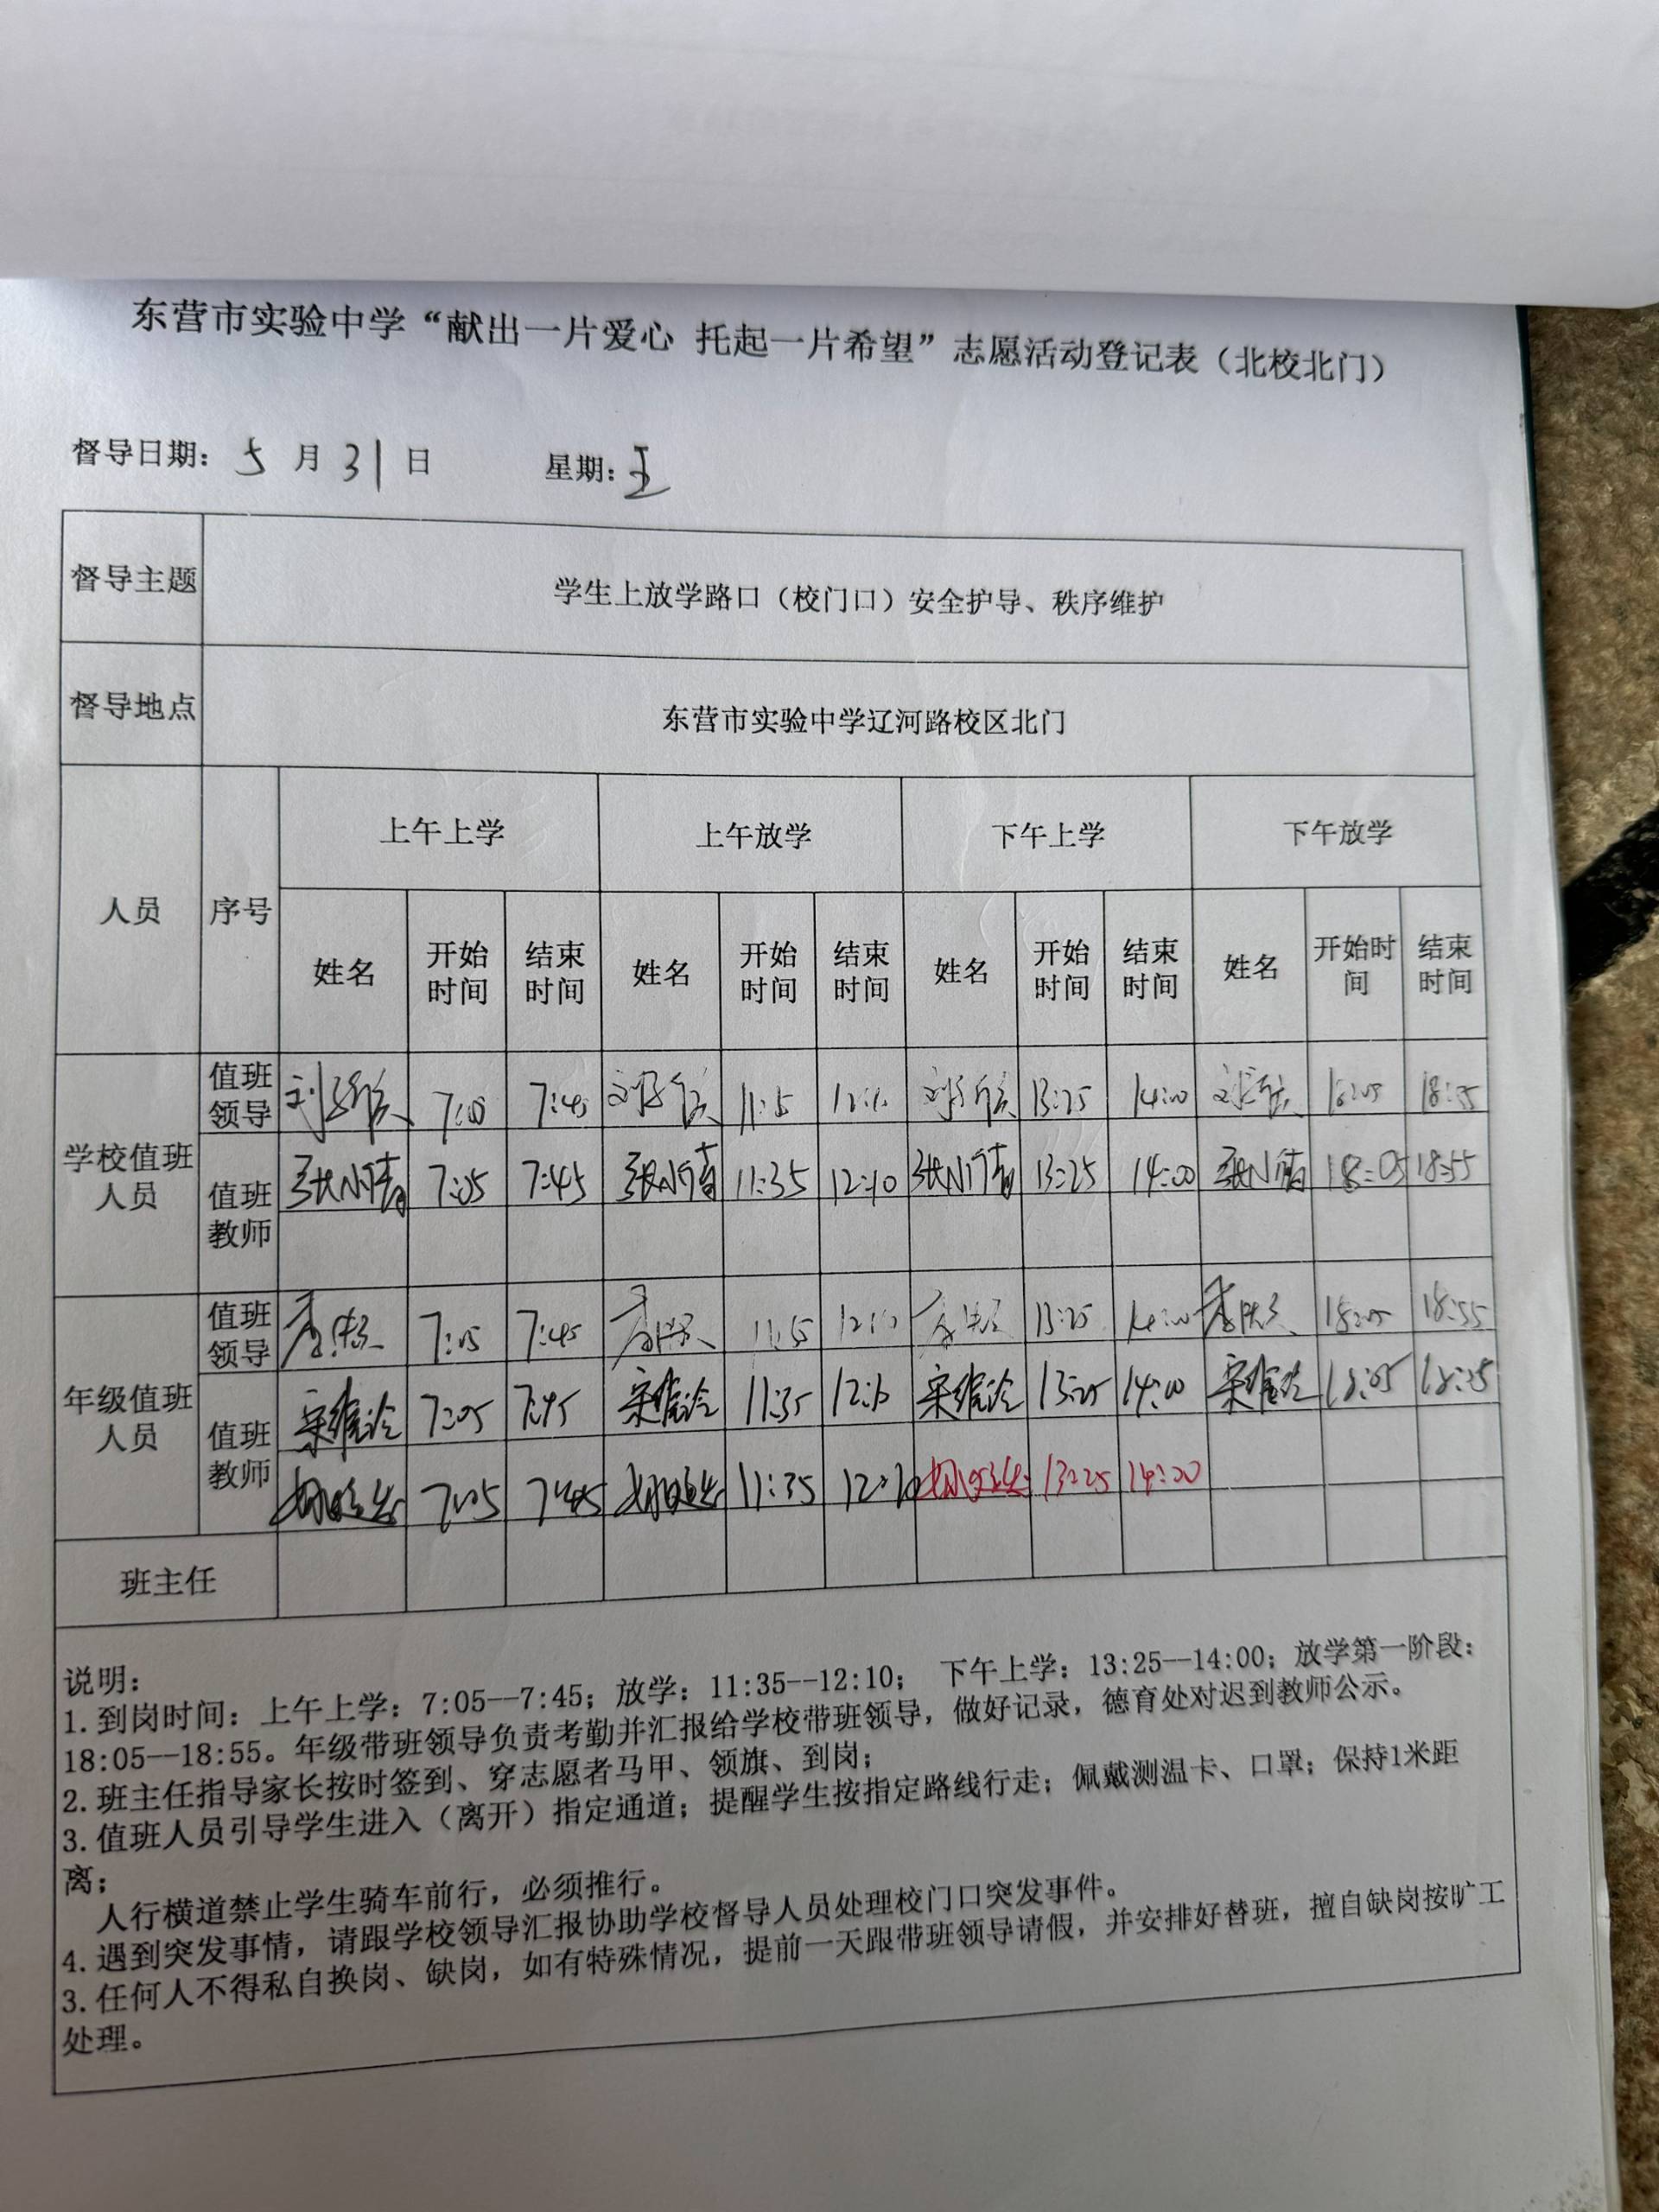 东营市实验中学“献出一片爱心 托起一片希望”志愿活动登记表（北校北门）
督导日期：5 月 31 日 星期：五
督导主题 学生上放学路口（校门口）安全护导、秩序维护
督导地点 东营市实验中学辽河路校区北门
人员 序号 上午上学 上午放学 下午上学 下午放学
姓名 开始时间 结束时间 姓名 开始时间 结束时间 姓名 开始时间 结束时间 姓名 开始时间 结束时间
学校值班人员
值班领导 7:45 13:25 14:00
值班教师 7:05 7:45 11:35 12:10 13:25 14:00 18:05 18:55
年级值班人员
值班领导 7:05 7:45 13:25 14:00 18:05 18:55
值班教师 宋维玲 7:05 7:45 宋维玲 11:35 12:10 宋维玲 13:25 14:00 宋维玲 18:05
7:05 7:45 11:35 12:10 13:25 14:00
班主任
说明：
1.到岗时间：上午上学：7:05--7:45；放学：11:35--12:10； 下午上学：13:25--14:00；放学第一阶段：
18:05--18:55。年级带班领导负责考勤并汇报给学校带班领导，做好记录，德育处对迟到教师公示。
2.班主任指导家长按时签到、穿志愿者马甲、领旗、到岗；
3.值班人员引导学生进入（离开）指定通道；提醒学生按指定路线行走；佩戴测温卡、口罩；保持1米距
离；
人行横道禁止学生骑车前行，必须推行。
4.遇到突发事情，请跟学校领导汇报协助学校督导人员处理校门口突发事件。
3.任何人不得私自换岗、缺岗，如有特殊情况，提前一天跟带班领导请假，并安排好替班，擅自缺岗按旷工
处理。